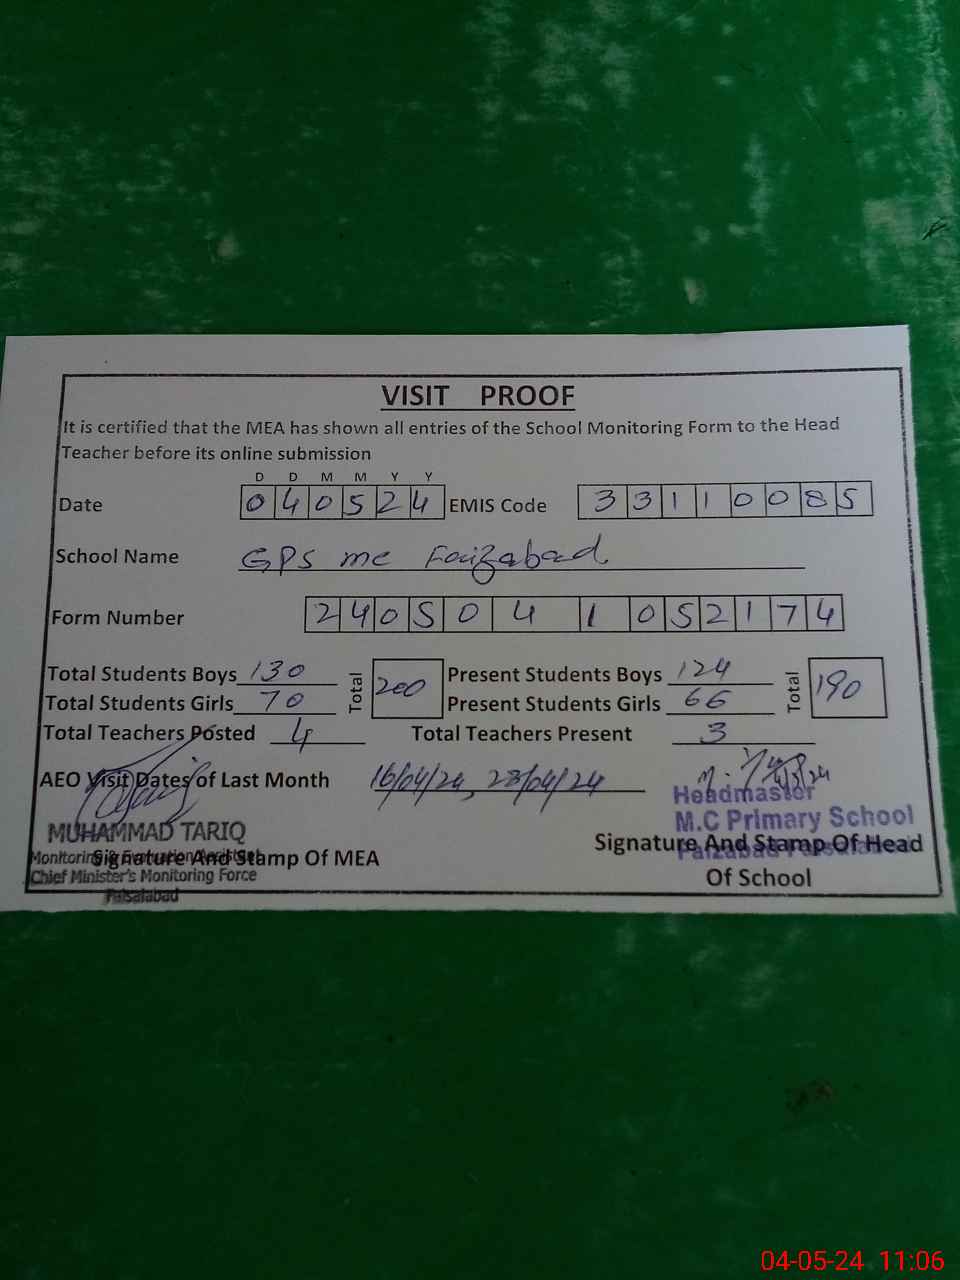 VISIT PROOF
It is certified that the MEA has shown all entries of the School Monitoring Form to the Head
Teacher before its online submission
D D M M Y Y
Date 0 4 0 5 2 4 EMIS Code 3 3 1 1 0 0 8 5
School Name GPS mc Faizabad
Form Number 2 4 0 5 0 4 1 0 5 2 1 7 4
Total Students Boys 130 Total 200 Present Students Boys 124 Total 190
Total Students Girls 70 Present Students Girls 66
Total Teachers Posted 4 Total Teachers Present 3
AEO Visit Dates of Last Month 16/04/24, 23/04/24
Headmaster
M.C Primary School
Faizabad Faisalabad
MUHAMMAD TARIQ
Monitoring & Evaluation Assistant
Chief Minister's Monitoring Force
Faisalabad
Signature And Stamp Of MEA
Signature And Stamp Of Head
Of School
04-05-24 11:06